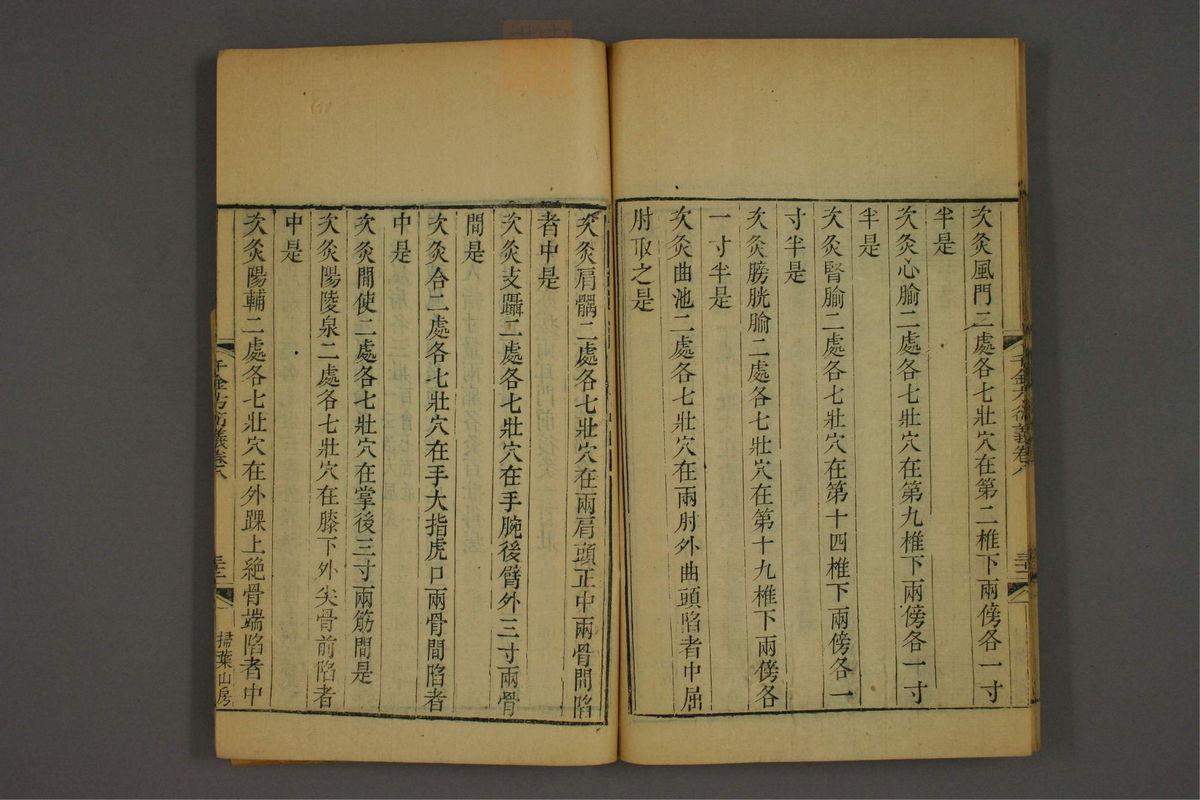 次灸風門二處各七壯穴在第二椎下兩傍各一寸
半是
次灸心腧二處各七壯穴在第九椎下兩傍各一寸
半是
次灸腎腧二處各七壯穴在第十四椎下兩傍各一
寸半是
次灸膀胱腧二處各七壯穴在第十九椎下兩傍各
一寸半是
次灸曲池二處各七壯穴在兩肘外曲頭陷者中屈
肘取之是
次灸肩髃二處各七壯穴在兩肩頭正中兩骨間陷
者中是
次灸支躡二處各七壯穴在手腕後臂外三寸兩骨
間是
次灸合二處各七壯穴在手大指虎口兩骨間陷者
中是
次灸間使二處各七壯穴在掌後三寸兩筋間是
次灸陽陵泉二處各七壯穴在膝下外尖骨前陷者
中是
次灸陽輔二處各七壯穴在外踝上絶骨端陷者中
千金方衍義卷八
掃葉山房